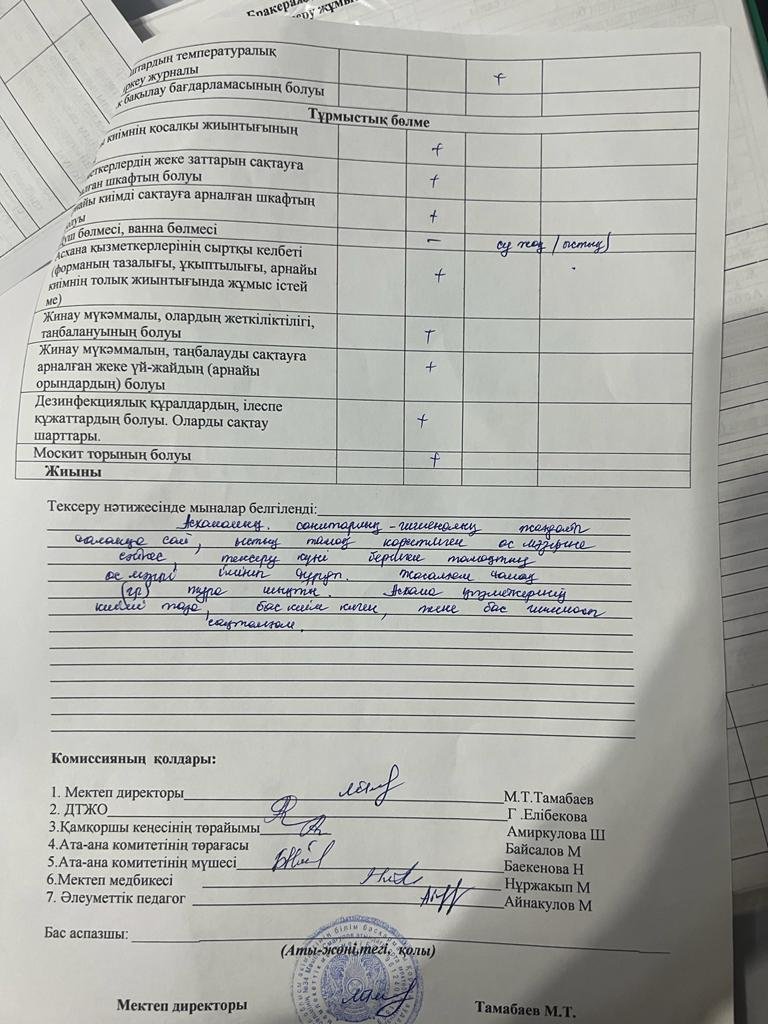 Бракераж
еру жұмы
штардың температуралық +
іркеу журналы
қ бақылау бағдарламасының болуы
Тұрмыстық бөлме
ы киімнің қосалқы жиынтығының +
меткерлердің жеке заттарын сақтауға +
лған шкафтың болуы
найы киімді сақтауға арналған шкафтың +
олуы
уш бөлмесі, ванна бөлмесі - су жоқ (ыстық)
Асхана қызметкерлерінің сыртқы келбеті +
(форманың тазалығы, ұқыптылығы, арнайы
киімнің толық жиынтығында жұмыс істей
ме)
Жинау мүкәммалы, олардың жеткіліктілігі, +
таңбалануының болуы
Жинау мүкәммалын, таңбалауды сақтауға +
арналған жеке үй-жайдың (арнайы
орындардың) болуы
Дезинфекциялық құралдардың, ілеспе +
құжаттардың болуы. Оларды сақтау
шарттары.
Москит торының болуы +
Жиыны
Тексеру нәтижесінде мыналар белгіленді:
Асхананың санитарлық-гигиеналық жағдайы
талапқа сай, ыстық тамақ көрсетілген ас мәзіріне
сәйкес, тексеру күні берілген тамақтың
ас мәзірі ілініп тұрұп. тамақ
(гр) тура шықты. Асхана қызметкерінің
киімі таза, бас киім киген, жеке бас гигиенасы
сақталған.
Комиссияның қолдары:
1. Мектеп директоры М.Т.Тамабаев
2. ДТЖО Г .Елібекова
3.Қамқоршы кеңесінің төрайымы Амиркулова Ш
4.Ата-ана комитетінің төрағасы Байсалов М
5.Ата-ана комитетінің мүшесі Баекенова Н
6.Мектеп медбикесі Нұржакып М
7. Әлеуметтік педагог Айнакулов М
Бас аспазшы:
(Аты-жөні,тегі, қолы)
Мектеп директоры Тамабаев М.Т.